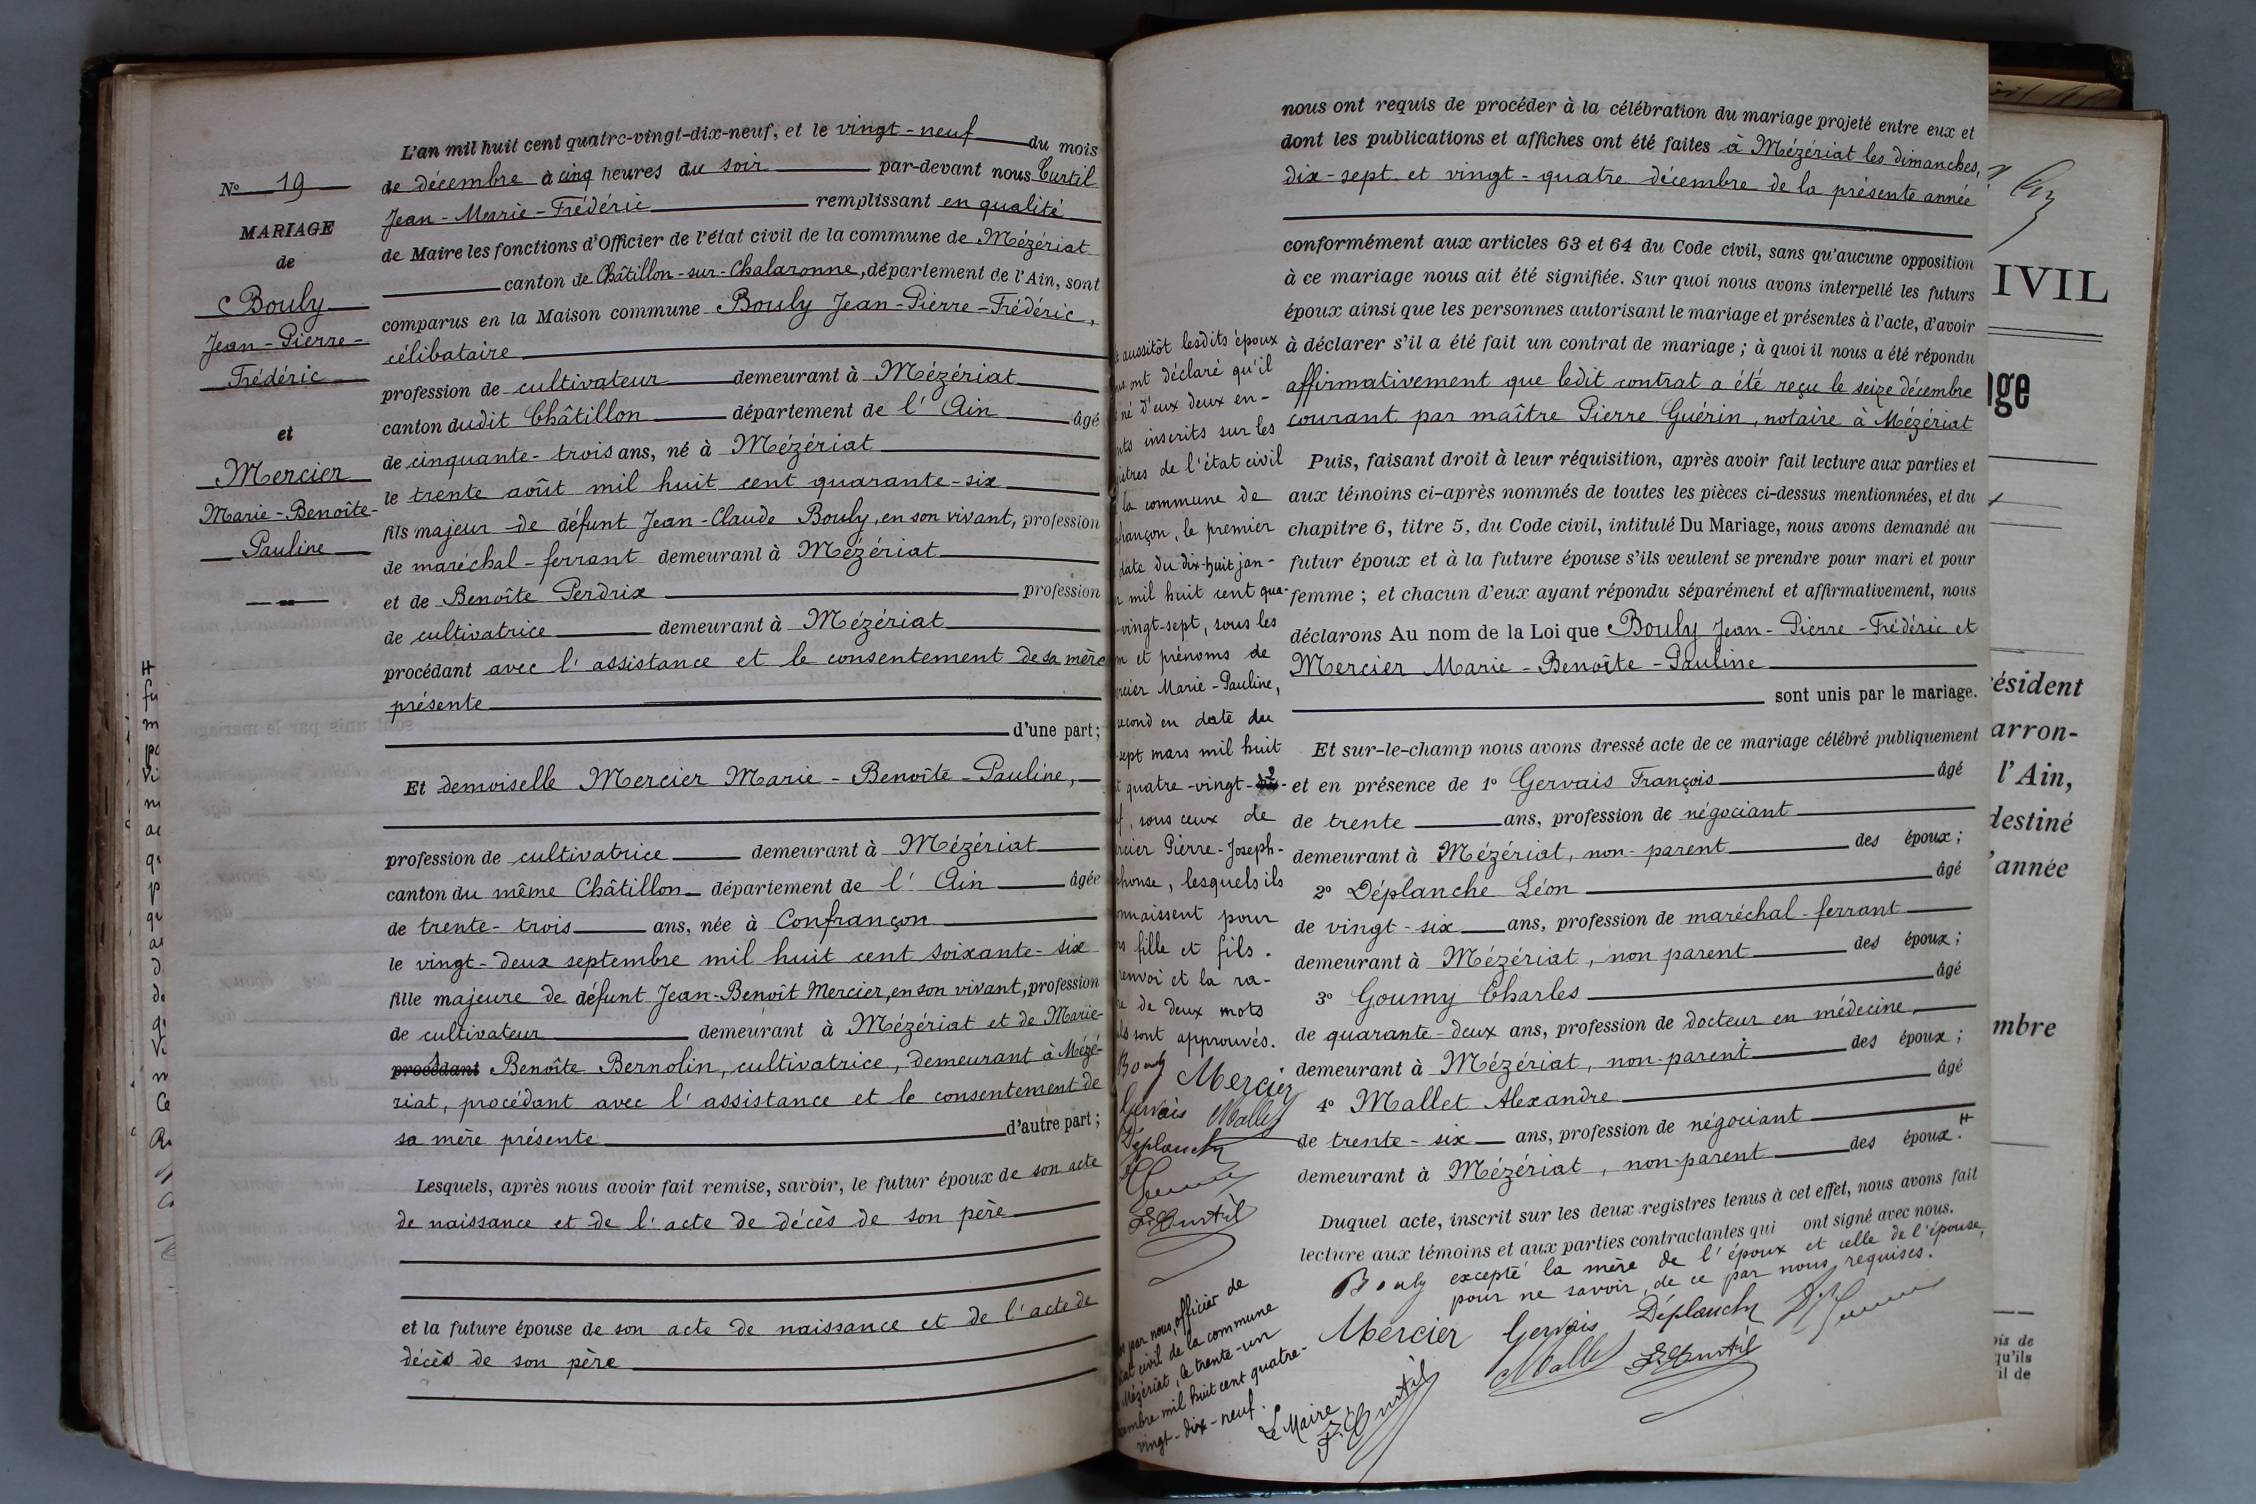 N° 19
MARIAGE
de
Bouly
Jean-Pierre-
Frédéric
et
Mercier
Marie-Benoîte-
Pauline
L'an mil huit cent quatre-vingt-dix-neuf, et le vingt-neuf du mois
de décembre à cinq heures du soir par-devant nous Curtil
Jean-Marie-Frédéric remplissant en qualité
de Maire les fonctions d'Officier de l'état civil de la commune de Mézériat
canton de Châtillon-sur-Chalaronne, département de l'Ain, sont
comparus en la Maison commune Bouly Jean-Pierre-Frédéric,
célibataire
profession de cultivateur demeurant à Mézériat
canton dudit Châtillon département de l'Ain âgé
de cinquante-trois ans, né à Mézériat
le trente août mil huit cent quarante-six
fils majeur de défunt Jean-Claude Bouly, en son vivant, profession
de maréchal-ferrant demeurant à Mézériat
et de Benoîte Perdrix profession
de cultivatrice demeurant à Mézériat
procédant avec l'assistance et le consentement de sa mère
présente
d'une part;
Et demoiselle Mercier Marie-Benoîte-Pauline,
profession de cultivatrice demeurant à Mézériat
canton du même Châtillon département de l'Ain âgée
de trente-trois ans, née à Confrançon
le vingt-deux septembre mil huit cent soixante-six
fille majeure de défunt Jean-Benoît Mercier, en son vivant, profession
de cultivateur demeurant à Mézériat et de Marie-
procédant Benoîte Bernolin, cultivatrice, demeurant à Mézé-
riat, procédant avec l'assistance et le consentement de
sa mère présente d'autre part;
Lesquels, après nous avoir fait remise, savoir, le futur époux de son acte
de naissance et de l'acte de décès de son père
et la future épouse de son acte de naissance et de l'acte de
décès de son père
nous ont requis de procéder à la célébration du mariage projeté entre eux et
dont les publications et affiches ont été faites à Mézériat les dimanches,
dix-sept et vingt-quatre décembre de la présente année
conformément aux articles 63 et 64 du Code civil, sans qu'aucune opposition
à ce mariage nous ait été signifiée. Sur quoi nous avons interpellé les futurs
époux ainsi que les personnes autorisant le mariage et présentes à l'acte, d'avoir
à déclarer s'il a été fait un contrat de mariage; à quoi il nous a été répondu
affirmativement que ledit contrat a été reçu le seize décembre
courant par maître Pierre Guérin, notaire à Mézériat
Puis, faisant droit à leur réquisition, après avoir fait lecture aux parties et
aux témoins ci-après nommés de toutes les pièces ci-dessus mentionnées, et du
chapitre 6, titre 5, du Code civil, intitulé Du Mariage, nous avons demandé au
futur époux et à la future épouse s'ils veulent se prendre pour mari et pour
femme; et chacun d'eux ayant répondu séparément et affirmativement, nous
déclarons Au nom de la Loi que Bouly Jean-Pierre-Frédéric et
Mercier Marie-Benoîte-Pauline
sont unis par le mariage.
Et sur-le-champ nous avons dressé acte de ce mariage célébré publiquement
et en présence de 1° Gervais François âgé
de trente ans, profession de négociant
demeurant à Mézériat, non-parent des époux;
2° Déplanche Léon âgé
de vingt-six ans, profession de maréchal-ferrant
demeurant à Mézériat, non parent des époux;
3° Goumy Charles âgé
de quarante-deux ans, profession de docteur en médecine,
demeurant à Mézériat, non-parent des époux;
4° Mallet Alexandre âgé
de trente-six ans, profession de négociant
demeurant à Mézériat, non-parent des époux.
Duquel acte, inscrit sur les deux registres tenus à cet effet, nous avons fait
lecture aux témoins et aux parties contractantes qui ont signé avec nous.
excepté la mère de l'époux et celle de l'épouse,
pour ne savoir, de ce par nous requises.
Bouly
Mercier Gervais Déplanche
Mallet F. Curtil
aussitôt lesdits époux
ont déclaré qu'il
né d'eux deux en-
inscrits sur les
de l'état civil
la commune de
le premier
date du dix-huit jan-
mil huit cent qua-
vingt-sept, sous les
et prénoms de
Marie-Pauline,
second en date du
sept mars mil huit
quatre-vingt-
sous ceux de
Pierre-Joseph-
lesquels ils
pour
fille et fils.
renvoi et la ra-
de deux mots
sont approuvés.
Bouly Mercier
Gervais Mallet
Déplanche
F. Curtil
par nous, officier de
civil de la commune
Mézériat, le trente-un
mil huit cent quatre-
vingt-dix-neuf.
Le Maire
F. Curtil
IVIL
ésident
arron-
l'Ain,
destiné
année
mbre